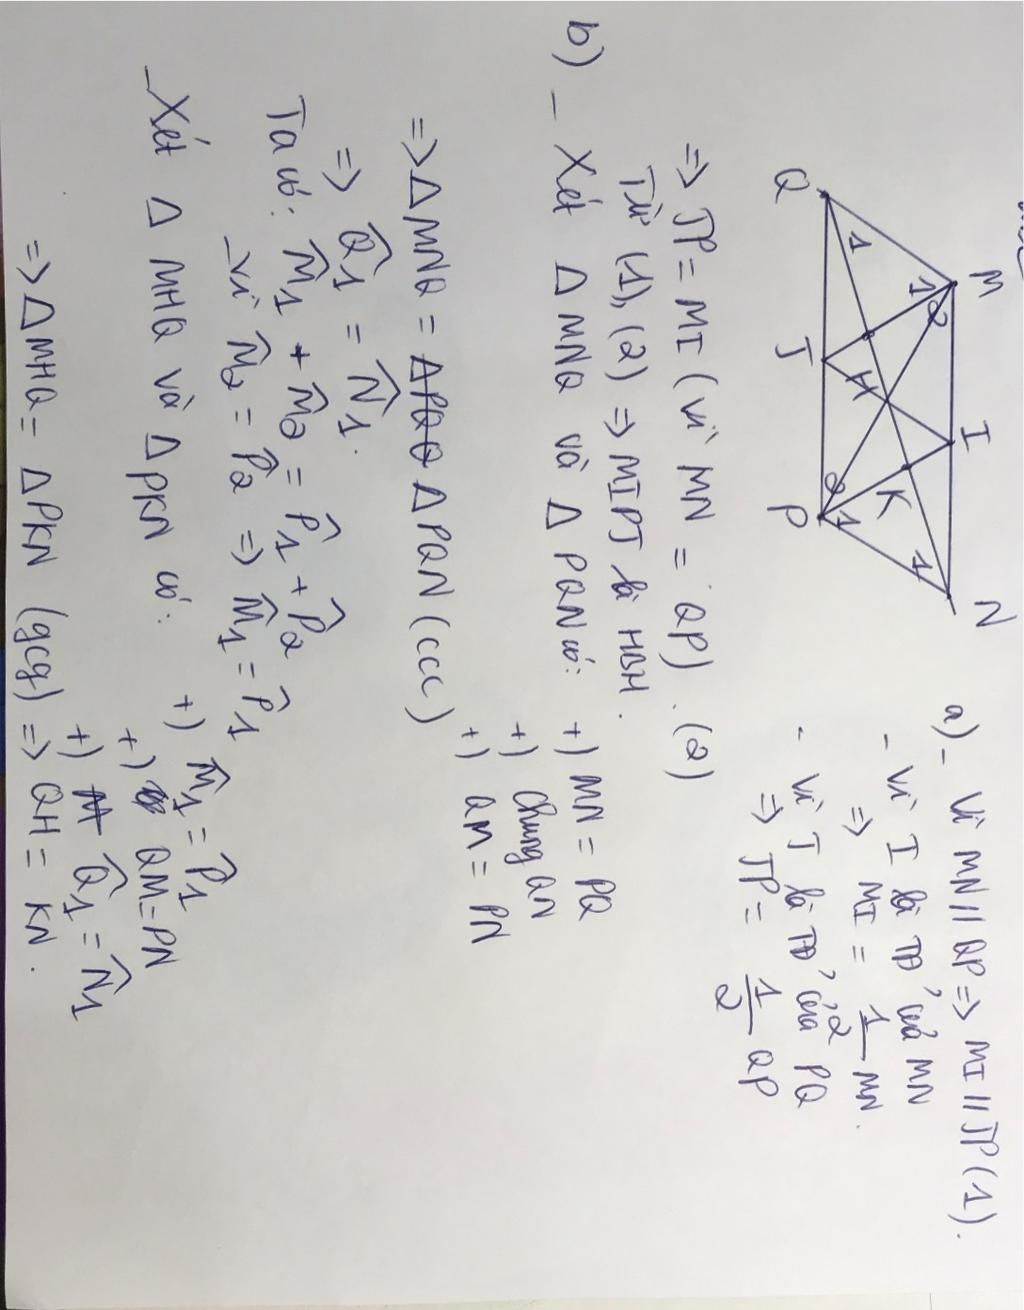 M I N
1 2 1
K
1 H 2 1
Q J P
a)_ Vì MN // QP => MI // JP (1).
- Vì I là TĐ' của MN
=> MI = 1/2 MN.
- Vì J là TĐ' của PQ
=> JP = 1/2 QP
=> JP = MI (vì MN = QP). (2)
Từ (1), (2) => MIPJ là HBH.
b) _ Xét Δ MNQ và Δ PQN có: +) MN = PQ
+) chung QN
+) QM = PN
=> Δ MNQ = Δ PQN (ccc)
=> Q̂1 = N̂1.
Ta có: M̂1 + M̂2 = P̂1 + P̂2
_ Vì M̂2 = P̂2 => M̂1 = P̂1
_ Xét Δ MHQ và Δ PKN có: +) M̂1 = P̂1
+) QM = PN
+) Q̂1 = N̂1
=> Δ MHQ = Δ PKN (gcg) => QH = KN.